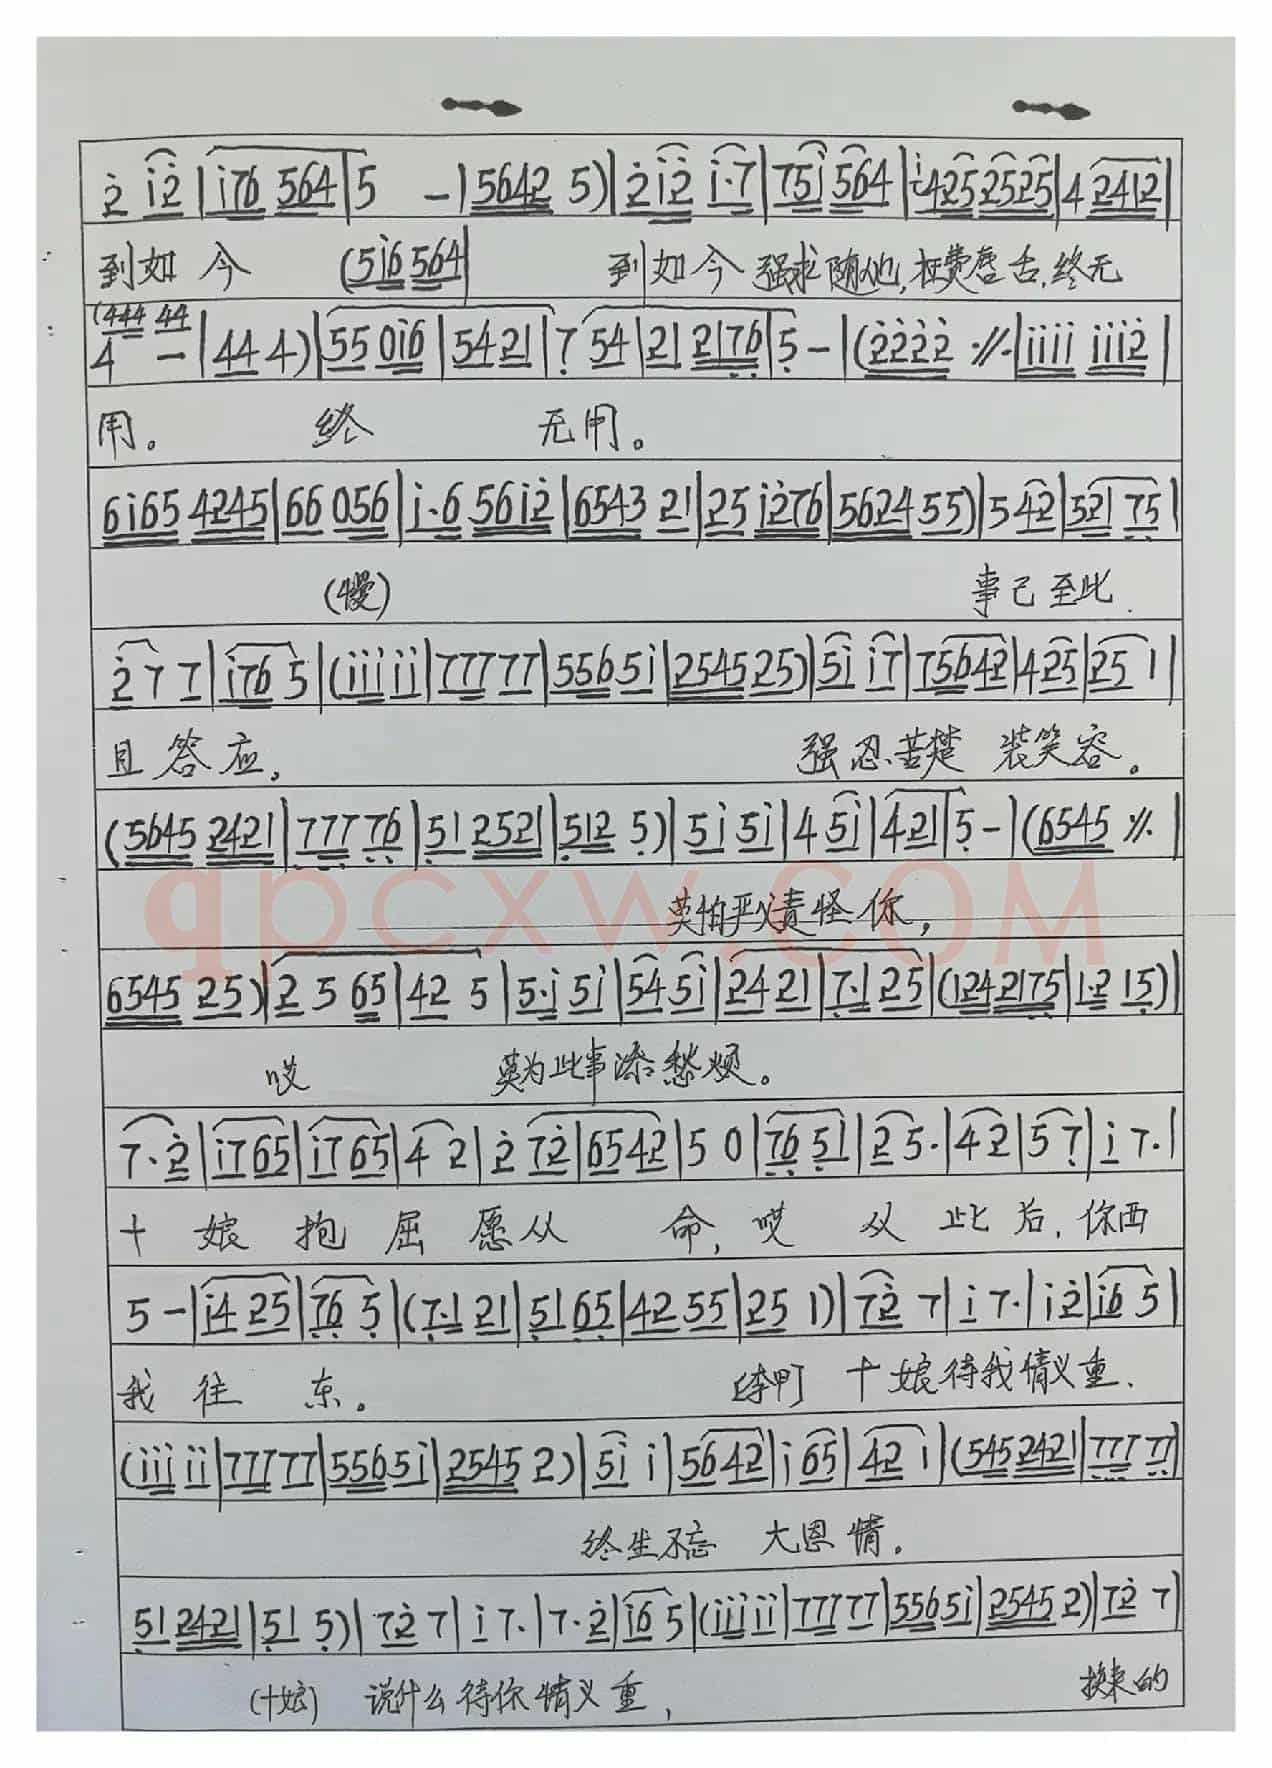 2̇ i̇2̇ | i̇76 564 | 5 - | 5642 5) | 2̇ i̇2̇ i̇·7 | 75i̇ 564 | i̇425 2525 | 4 2412 |
到如今 (5i̇6 564| 到如今 强求随他,枉费唇舌,终无
(444 44
4 - | 44 4) | 55 0i̇6 | 5421 | 7̣ 54 | 21 217̣6̣ | 5̣ - | (2̇2̇2̇2̇ ·//· | i̇i̇i̇i̇ i̇i̇i̇2̇ |
用。 终 无用。
6i̇65 4245 | 66 056 | i̇·6 56i̇2̇ | 6543 21 | 25 i̇2̇76 | 5624 55) | 5 42 | 521 7̣5̣ |
(慢) 事已至此
2̇ 7 7 | i̇76 5 | (i̇i̇i̇ i̇i̇ | 777 77 | 556 5i̇ | 2545 25) | 5i̇ i̇7 | 75642 | 4 25 | 25 1 |
且答应, 强忍苦楚 装笑容。
(5645 2421 | 7̣7̣7̣ 7̣6̣ | 5̣1 2521 | 5̣12 5̣) | 5i̇ 5i̇ | 4 5i̇ | 421 | 5̣ - | (6545 ·//· |
莫怕严父责怪你,
qpcxw.COM
6545 25) | 2 5 65 | 42 5 | 5·i̇ 5i̇ | 54 5i̇ | 24 21 | 7̣·1 25 | (124 217̣5̣ | 1·2 15̣) |
哎 莫为此事添愁烦。
7·2̇ | i̇7 65 | i̇7 65 | 4 2 | 2̇ 72̇ | 65 42 | 5 0 | 7̣6̣ 5̣1 | 2 5· | 4 2 | 5 7̣ | i̇ 7· |
十娘抱屈愿从 命,哎 从此后,你西
5 - | i̇4 25 | 7̣6̣ 5̣ | (7̣·1 21 | 5̣1 6̣5̣ | 42 55 | 25 1) | 72̇ 7 | i̇ 7· | i̇ 2̇ | i̇6 5 |
我往东。 (李甲) 十娘待我情义重.
(i̇i̇i̇ i̇i̇ | 777 77 | 556 5i̇ | 2545 2) | 5i̇ i̇ | 56 42 | i̇ 65 | 42 1 | (545 2421 | 7̣7̣7̣ 7̣7̣ |
终生不忘 大恩情。
5̣1 2421 | 5̣1 5̣) | 72̇ 7 | i̇ 7· | 7·2̇ | i̇6 5 | (i̇i̇i̇ i̇i̇ | 777 77 | 556 5i̇ | 2545 2) | 72̇ 7 |
(十娘) 说什么待你情义重, 换来的